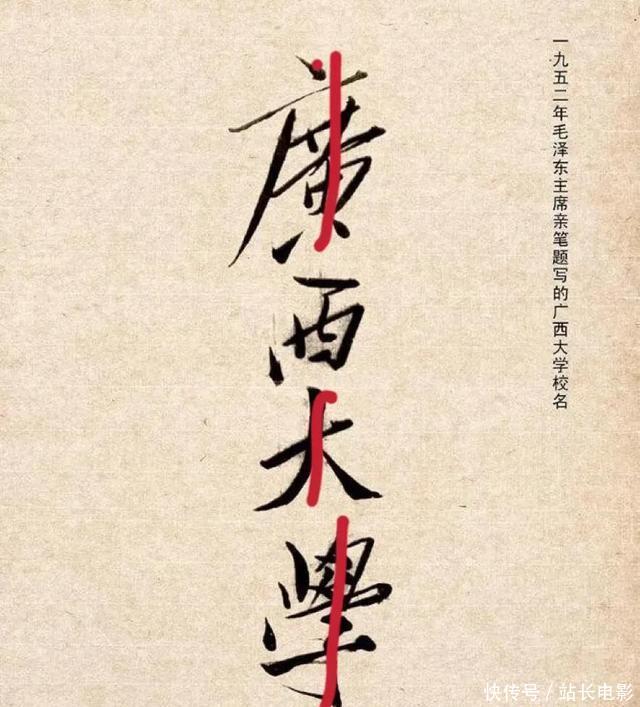 一九五二年毛泽东主席亲笔题写的广西大学校名
廣西大學
快传号／站长电影